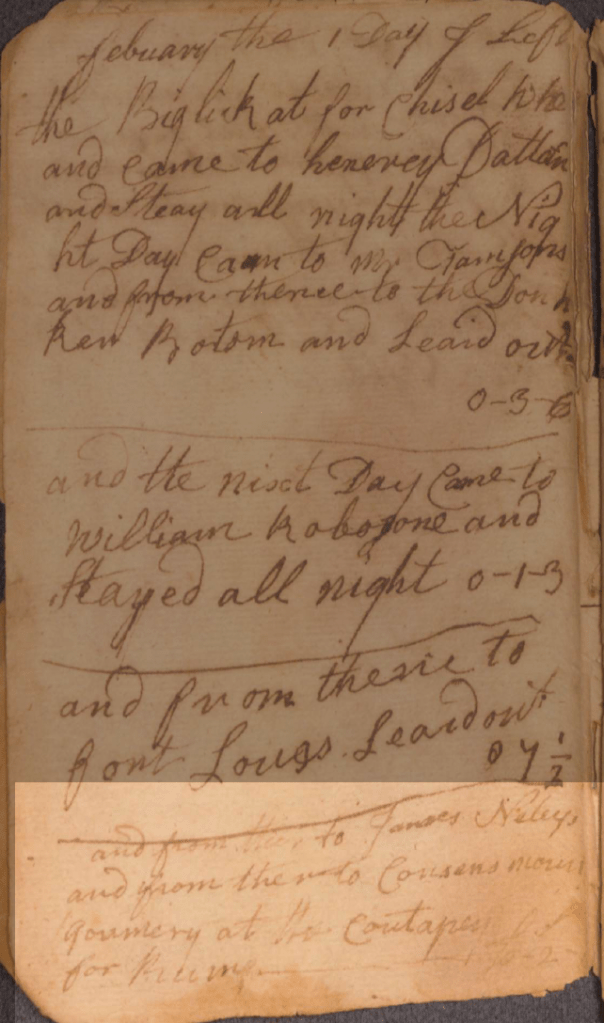 febuary the 1 Day I Left
the Biglick at for Chisel
and came to henerey Dattan
and Steay all night the Nig
ht Day Caun to Mr
and from thence to the Donk
ken Botom and Leaid out
0-3-6
and the nixt Day Came to
William Robosone and
Stayed all night 0-1-3
and from thence to
fort Loues Leaidout
0 7 1/2
and from ther to James Neleys
and from ther to Cousens moun
goumery at the
for Rum